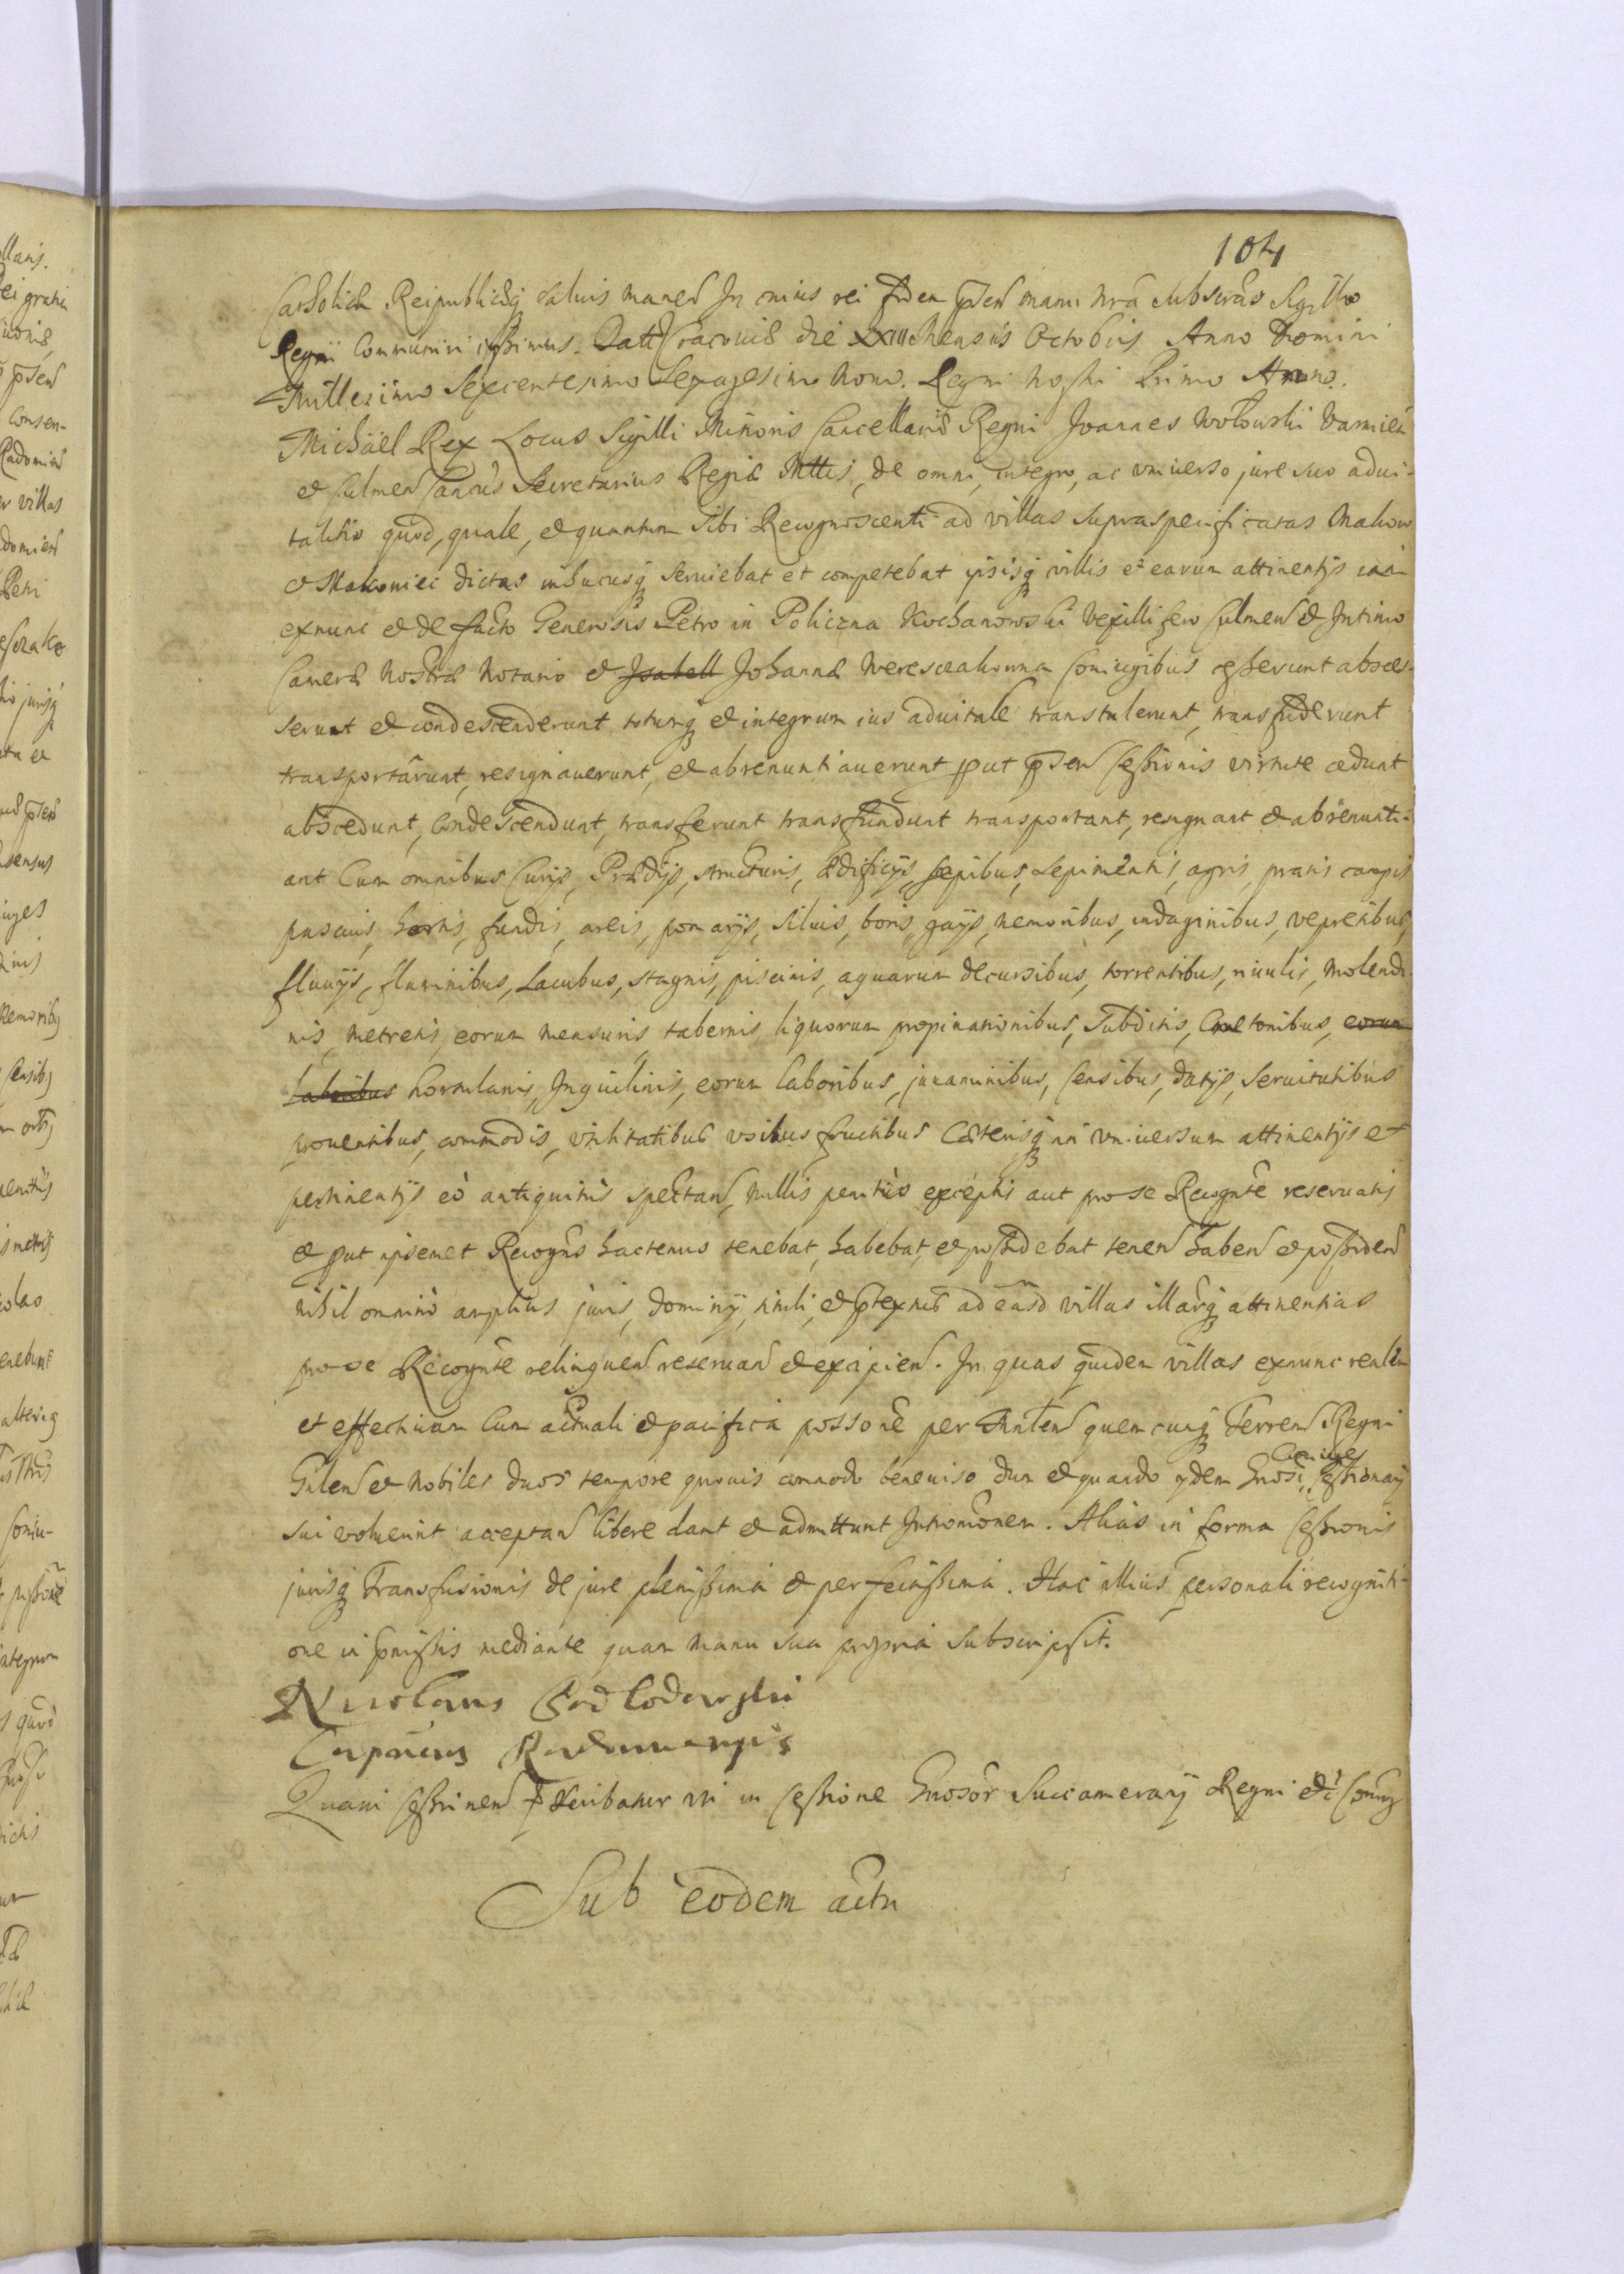 104
Catholicæ Reipublicæq saluis manen In cuius rei fidem pnten manu nra subscrãs Sigillo
Regni Communiri iussimus. Datt Cracouiæ die XXIII Mensis Octobris Anno Domini
Millesimo Sexcentesimo Sexagesimo Nono. Regni Nostri Primo Anno.
Michäel Rex Locus Sigilli Minoris Cancellariæ Regni Joannes Wołowski Varmien
et Culmen Cancus Secretarius Regiæ Mttis, de omni, integro, ac vniuerso jure suo adui-
talitio quod, quale, et quantum sibi Recognoscenti ad villas supraspecificatas Makow
et Makowiec dictas inhucusq seruiebat et competebat ipsisq villis et earum attinentijs
exnunc et de facto Generosis Petro in Policzna Kochanowski Vexillifero Culmen et Intimo
Cameræ Nostræ Notario et Isabell Johannæ Wereszczakowna Coniugibus cesserunt absces-
serunt et condescenderunt totumq et integrum ius aduitale transtulerunt, transfuderunt
transportârunt, resignauerunt, et abrenuntiauerunt put pnten Cessionis virtute cedunt
abscedunt, Condescendunt, transferunt transfundunt transportant, resignant et abrenunti-
ant Cum omnibus Curijs, Prædijs, structuris, ædificijs, sepibus, sepimentis, agris, pratis campis
pascuis, hortis, fundis, areis, pomarijs, siluis, boris, gaijs, nemoribus, indaginibus, vepretibus,
fluuijs, fluminibus, Lacubus, stagnis, piscinis, aquarum decursibus, torrentibus, riuulis, Molendi-
nis, metretis, eorum mensuris tabernis, liquorum propinationibus, Subditis, Cmetonibus, eorum
Laboribus hortulanis, Inquilinis, eorum laboribus, juuaminibus, Censibus, datijs, seruitutibus
prouentibus, commodis, vtilitatibus vsibus fructibus Cæterisq in vniuersum attinentijs et
pertinentijs eò antiquitùs spectan, Nullis penitùs exceptis aut pro se Recognte reseruatis
et put ipsemet Recogns hactenus tenebat, habebat, et possidebat tenen haben et possiden
nihil omninò amplius juris, dominij, tituli, et ptextus ad easd villas illarq attinentias
pro se Recognte relinquen reseruan et excipien. In quas quidem villas exnunc realem
et effectiuam Cum actuali et pacifica possone per Mnten quemcunq Terren Regni
Gnlen et Nobiles duos tempore quouis commodo beneuiso dum et quando ijdem Gnosi Coniuges Cessionarij
sui voluerint acceptan libere dant et admittunt Intromonem. Alias in forma Cessionis
jurisq Transfusionis de jure plenissima et perfectissima. Hac illius personali recogniti-
one in pmissis mediante quam manu sua propria subscripsit.
Nicolaus Podlodowski
Capneus Radomiensis
Quam Cessionen Scribatur vti in Cessione Gnosor Succamerarij Regni etc Coniug
Sub eodem actu